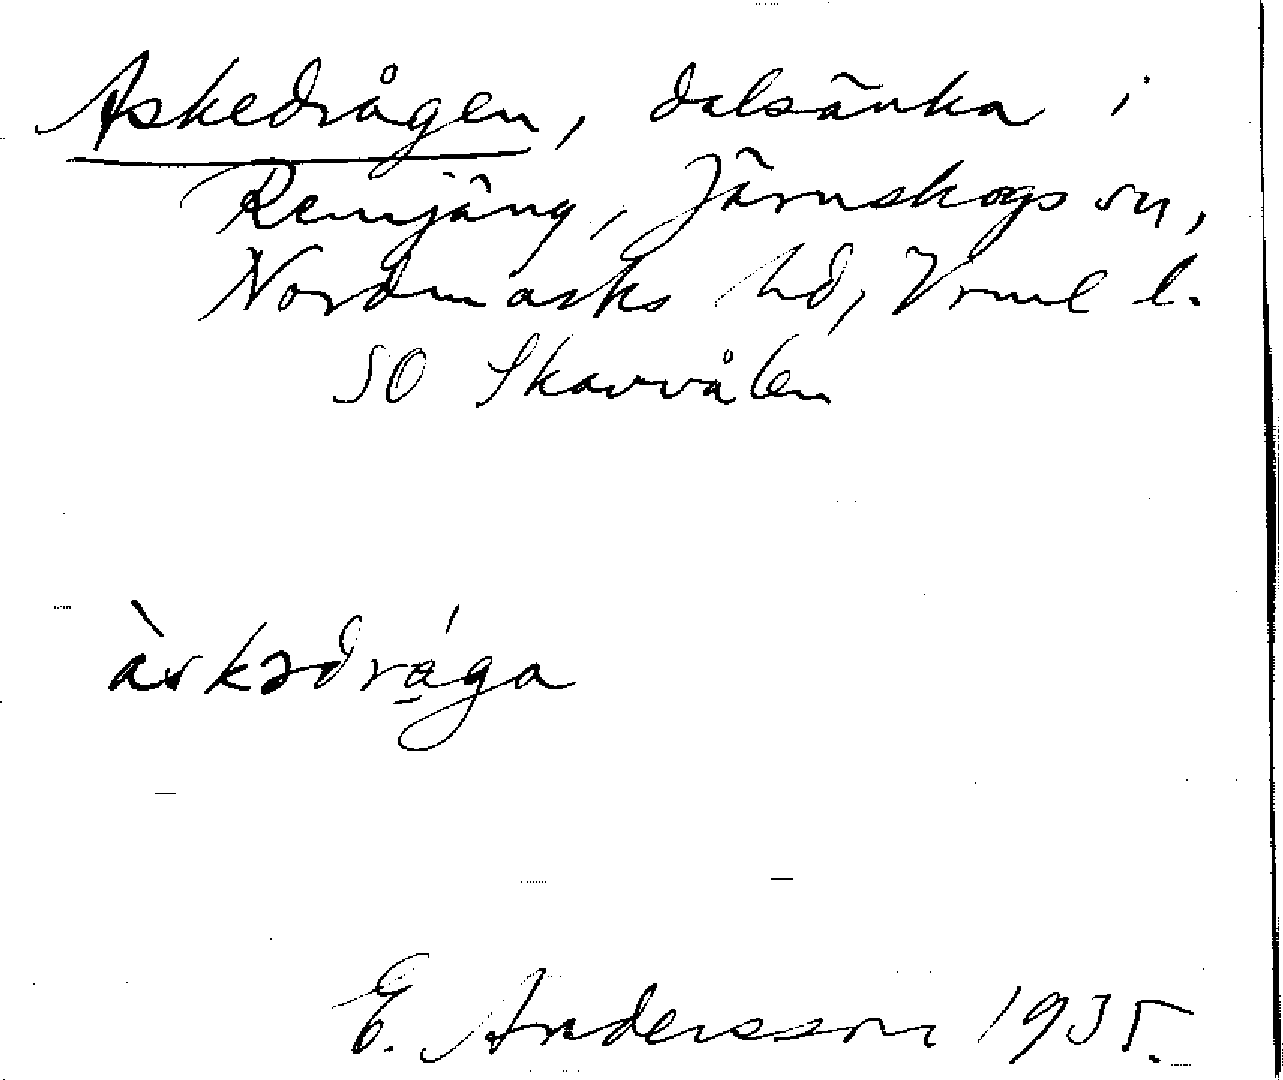 Askedrågen, dalsänka i
Remjäng, Järnskogs sn,
Nordmarks hd, Vrml l.
SO Skarvålen
àskədrá̱ga
E. Andersson 1935.